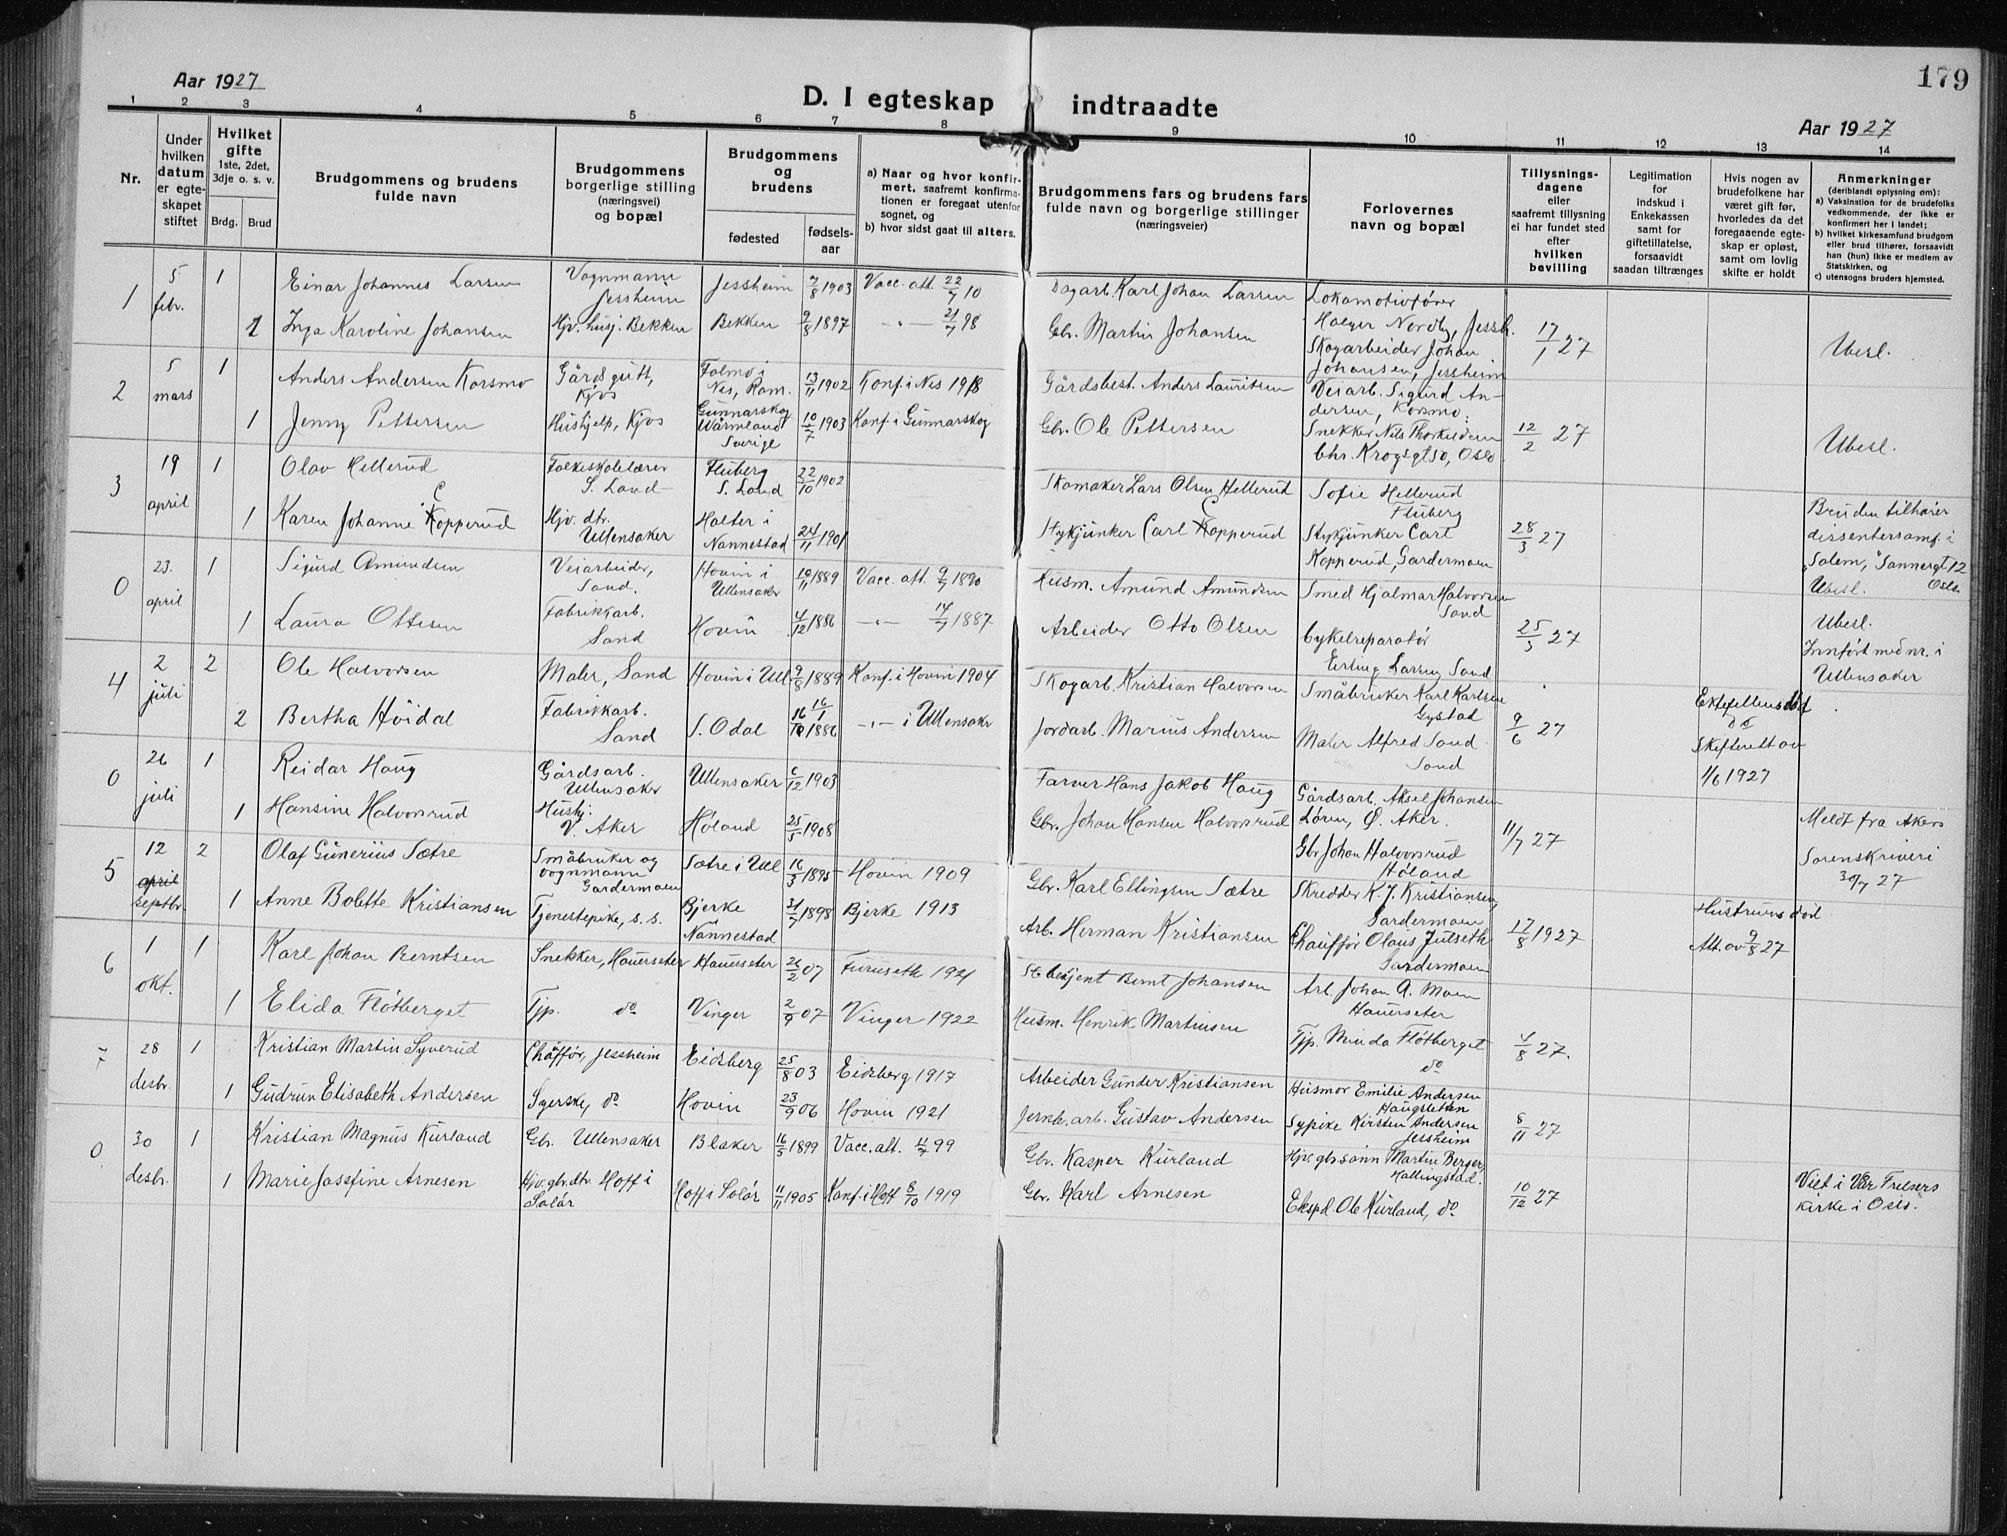 179
Aar 1927
D. I egteskap indtraadte
Aar 1927
1 2 3 4 5 6 7 8 9 10 11 12 13 14
Nr.
Under hvilken datum er egteskapet stiftet
Hvilket gifte 1ste, 2det, 3dje o. s. v.
Brdg. Brud
Brudgommens og brudens fulde navn
Brudgommens borgerlige stilling (næringsvei) og bopæl
Brudgommens og brudens
fødested
fødselsaar
a) Naar og hvor konfirmert, saafremt konfirmationen er foregaat utenfor sognet, og
b) hvor sidst gaat til alters.
Brudgommens fars og brudens fars fulde navn og borgerlige stillinger (næringsveier)
Forlovernes navn og bopæl
Tillysningsdagene eller saafremt tillysning ei har fundet sted efter hvilken bevilling
Legitimation for indskud i Enkekassen samt for giftetillatelse, forsaavidt saadan tiltrænges
Hvis nogen av brudefolkene har været gift før, hvorledes da det foregaaende egteskap er opløst, samt om lovlig skifte er holdt
Anmerkninger (deriblandt oplysning om):
a) Vaksination for de brudefolks vedkommende, der ikke er konfirmert her i landet;
b) hvilket kirkesamfund brudgom eller brud tilhører, forsaavidt han (hun) ikke er medlem av Statskirken, og
c) utensogns bruders hjemsted.
1 5 febr. 1 Einar Johannes Larsen Vognmann Jessheim Jessheim 7/8 1903 Vacc. att. 22/7 10 Dagarb. Karl Johan Larsen Lokomotivfører Holger Nordby, Jessh.
1 Inga Karoline Johansen Hjv. husj. Bekken Bekken 9/8 1897 -"- 21/7 98 Gbr. Martin Johansen Skogarbeider Johan Johansen, Jessheim 17/1 27 Ubesl.
2 5 mars 1 Anders Andersen Korsmo Gårdsgutt, Kjos Folmo i Nes, Rom. 13/11 1902 Konf. i Nes 1918 Gårdsbest. Anders Lauritsen Veiarb. Sigurd Andersen, Korsmo.
1 Jenny Pettersen Hushjelp, Kjos Gunnarskog Wärmland Sverige 10/7 1903 Konf. i Gunnarskog Gbr. Ole Pettersen Snekker Nils Thorkildsen Chr. Krogsgt 50, Oslo 12/2 27 Ubesl.
3 19 april 1 Olav Hellerud Folkeskolelærer S. Land Fluberg S. Land 22/10 1902 Skomaker Lars Olsen Hellerud Sofie Hellerud Fluberg
1 Karen Johanne Copperud Hjv. dtr. Ullensaker Holter i Nannestad 24/11 1901 Stykjunker Carl Copperud Stykjunker Carl Kopperud, Gardermoen 28/3 27 Bruden tilhører dissentersamf. i "Salem," Sannergt 12 Oslo. Ubesl.
0 23. april 1 Sigurd Amundsen Veiarbeider, Sand. Hovin i Ullensaker 10/11 1889 Vacc. att. 9/7 1890 Husm. Amund Amundsen Smed Hjalmar Halvorsen Sand
1 Laura Ottesen Fabrikkarb. Sand Hovin 4/12 1886 -"- 14/7 1887 Arbeider Otto Olsen Cykelreparatør Erling Larsen, Sand 25/3 27 Ubesl. Innført med nr. i Ullensaker
4 2 juli 2 Ole Halvorsen Maler, Sand Hovin i Ull. 9/8 1889 Konf. i Hovin 1904 Skogarb. Kristian Halvorsen Småbruker Karl Karlsen Gystad
2 Bertha Høidal Fabrikkarb. Sand S. Odal 16/1 1886 -"- i Ullensaker Jordarb. Marius Andersen Maler Alfred Sand Sand 9/6 27 Ektefellens død Skifterett av 1/6 1927
0 26 juli 1 Reidar Haug Gårdsarb. Ullensaker Ullensaker 6/12 1903 Farver Hans Jakob Haug Gårdsarb. Aksel Johansen Løren, Ø. Aker.
1 Hansine Halvorsrud Hushj. V. Aker Høland 25/5 1908 Gbr. Johan Hansen Halvorsrud Gbr Johan Halvorsrud Høland 11/7 27 Meldt fra Akers Sorenskriveri 30/7 27
5 12 april septbr. 2 Olaf Gunerius Sætre Småbruker og vognmann Gardermoen Sætre i Ull 16/3 1895 Hovin 1909 Gbr. Karl Ellingsen Sætre Skredder K. J. Kristiansen, Gardermoen
1 Anne Bolette Kristiansen Tjenestepike, s. s. Bjerke Nannestad 21/7 1898 Bjerke 1913 Arb. Herman Kristiansen Chauffør Olaus Julseth Gardermoen 17/8 1927 Hustruens død Att. av 9/8 27
6 1 okt. 1 Karl Johan Berntsen Snekker, Hauerseter Hauerseter 26/2 07 Furuseth 1921 Stbetjent Bernt Johansen Arb. Johan A. Moen Hauerseter
1 Elida Fløtberget Tjp. do Vinger 2/9 07 Vinger 1922 Husm. Henrik Martinsen Tjp. Minda Fløtberget do 4/8 27.
7 28 desbr. 1 Kristian Martin Syverud Chåffør, Jessheim Eidsberg 25/8 03 Eidsberg 1917 Arbeider Gunder Kristiansen Husmor Emilie Andersen Haugsletten
1 Gudrun Elisabeth Andersen Syerske, do Hovin 23/9 06 Hovin 1921 Jernb. arb. Gustav Andersen Sypike Kirsten Andersen Jessheim 8/11 27
0 30 desbr. 1 Kristian Magnus Kurland Gbr. Ullensaker Blaker 16/5 1899 Vacc. att. 4/7 99 Gbr. Kasper Kurland Hjv. gbr.sønn Martin Berger, Hallingstad.
1 Marie Josefine Arnesen Hjv. gbr.dtr. Hoff i Solør Hoff i Solør 11/11 1905 Konf. i Hoff 8/10 1919 Gbr. Karl Arnesen Ekspd. Ole Kurland, do 10/12 27 Viet i Vår Frelsers kirke i Oslo.